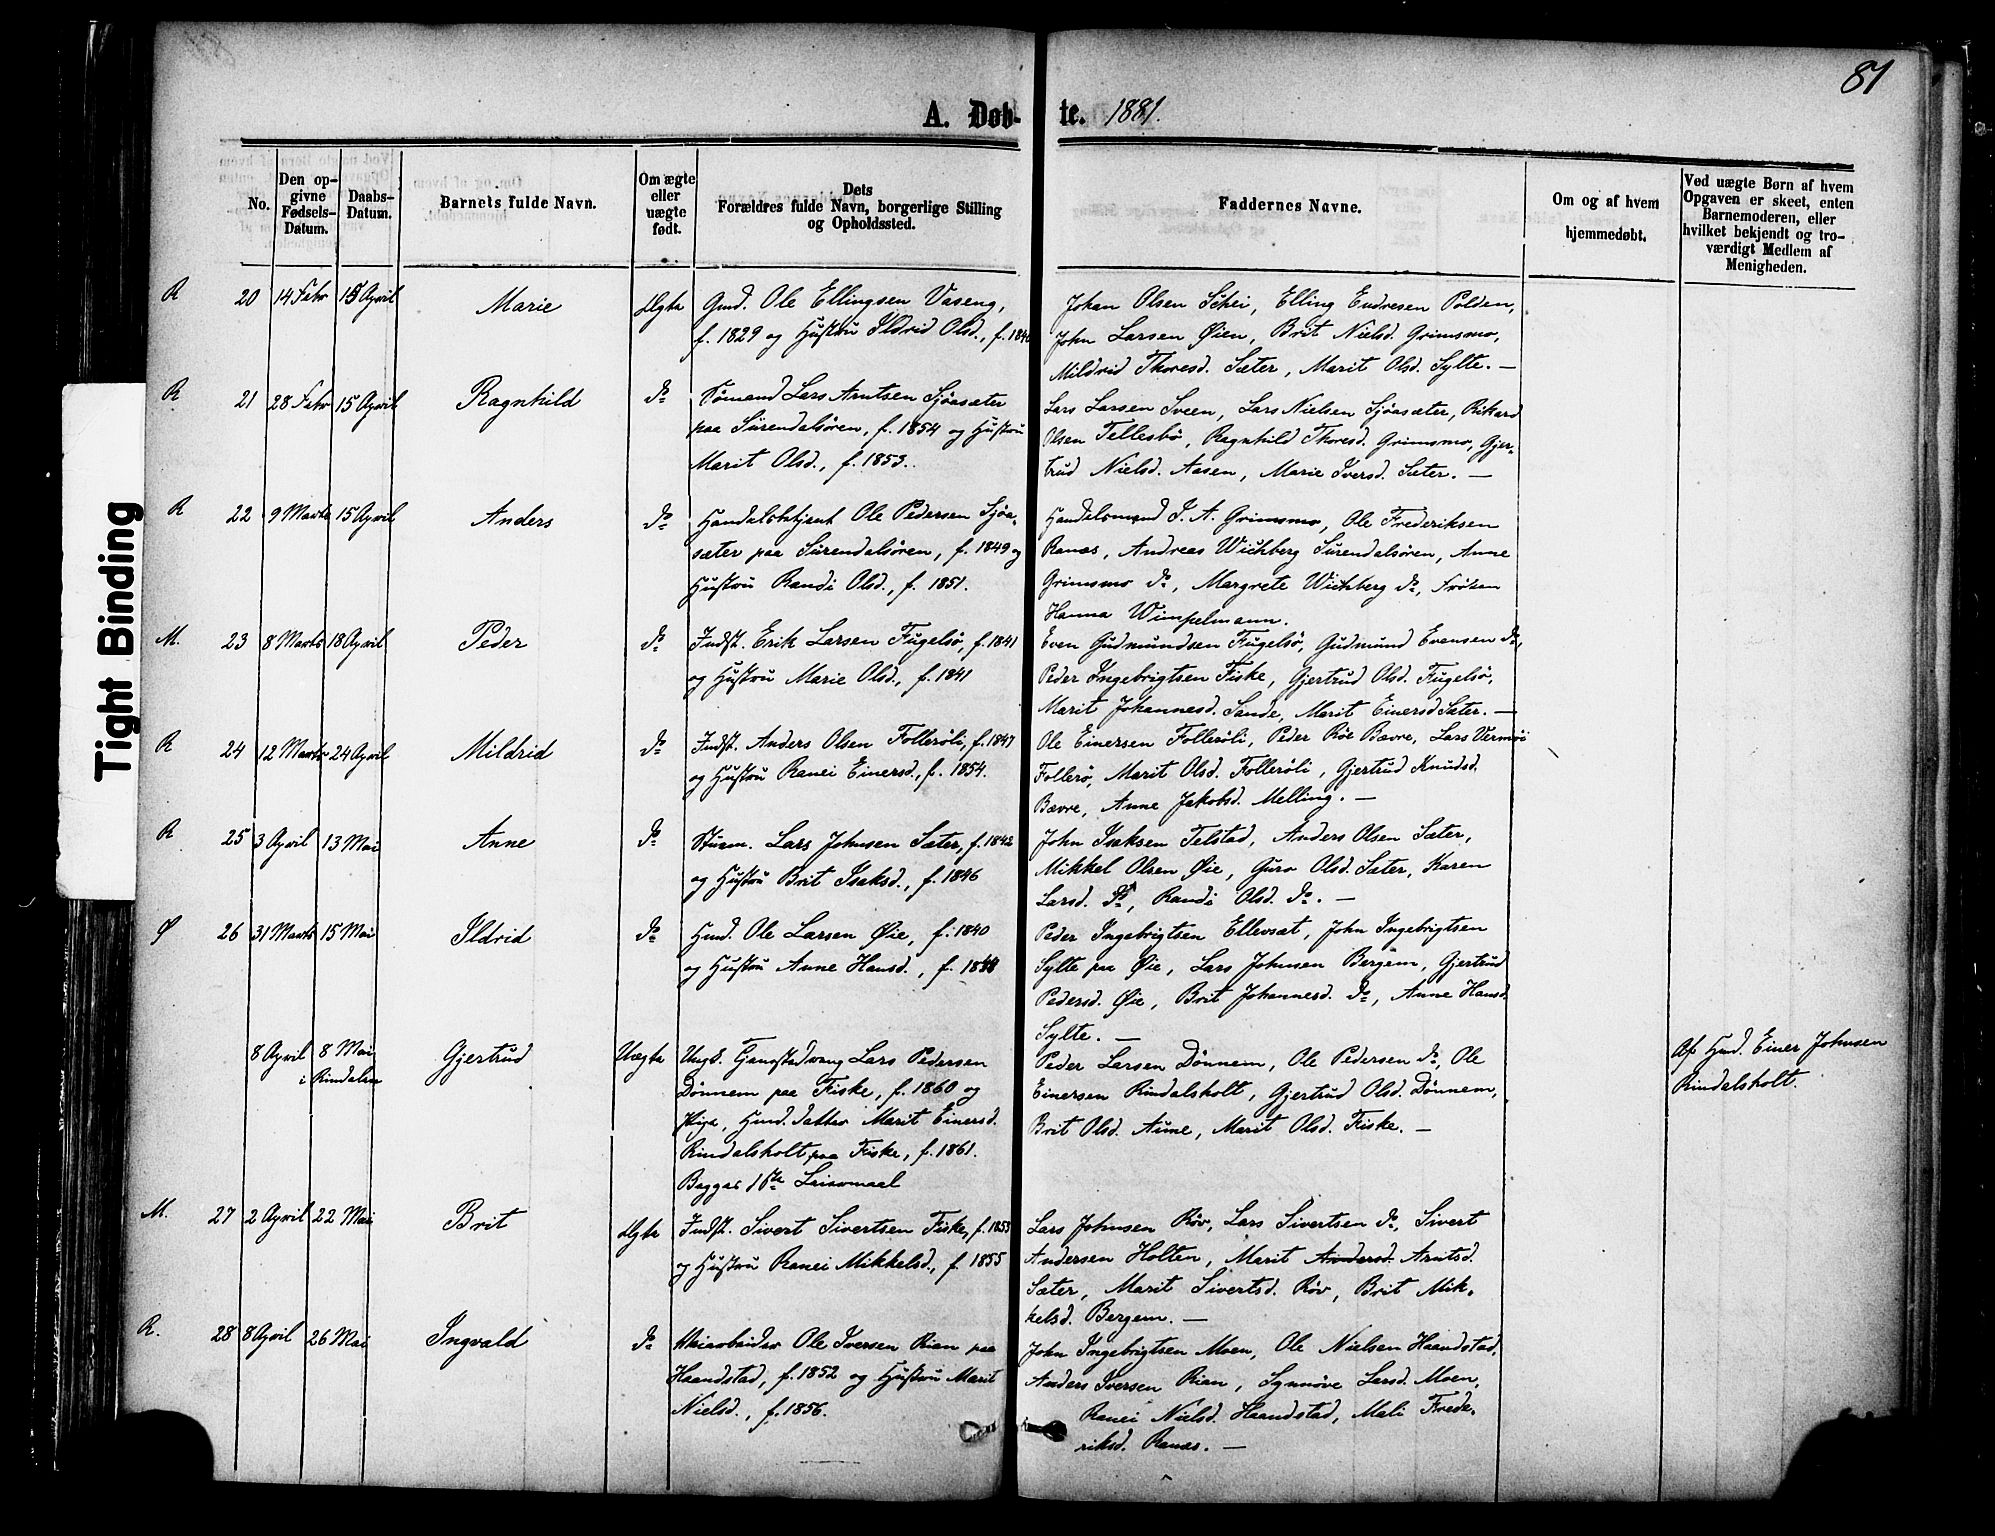 81
A. Døb- te. 1881.
No.
Den op-
givne
Fødsels-
Datum.
Daabs-
Datum.
Barnets fulde Navn.
Om ægte
eller
uægte
født.
Dets
Forældres fulde Navn, borgerlige Stilling
og Opholdssted.
Faddernes Navne.
Om og af hvem
hjemmedøbt.
Ved uægte Børn af hvem
Opgaven er skeet, enten
Barnemoderen, eller
hvilket bekjendt og tro-
værdigt Medlem af
Menigheden.
Tight Binding
R 20 14 Febr 15 April Marie Ægte
Gmd. Ole Ellingsen Vaseng,
f. 1829 og Hustru Ildrid Olsd., f. 1840
Johan Olsen Schei, Elling Endresen Polden,
John Larsen Øien, Brit Nielsd. Grimsmo,
Mildrid Thoresd. Sæter, Marit Olsd. Sylte. —
R 21 28 Febr 15 April Ragnhild do
Tømand Lars Arntsen Sjøasæter
paa Surendalsøren, f. 1854 og Hustru
Marit Olsd., f. 1853.
Lars Larsen Sveen, Lars Nielsen Sjøasæter, Rikard
Olsen Tellesbø, Ragnhild Thoresd. Grimsmo, Gjer-
trud Nielsd. Aasen, Marie Iversd. Sæter. —
R 22 9 Marts 15 April Anders do
Handelsbetjent Ole Pedersen Sjøa-
sæter paa Surendalsøren, f. 1849 og
Hustru Randi Olsd., f. 1851.
Handelsmand I. A. Grimsmo, Ole Frederiksen
Ranæs, Andreas Wichberg Surendalsøren, Anne
Grimsmo do, Margrete Wichberg do, Frøken
Hanna Wimpelmann.
M. 23 8 Marts 18 April Peder do
Indst. Erik Larsen Fugelsø, f. 1841
og Hustru Marie Olsd., f. 1841
Even Gudmundsen Fugelsø, Gudmund Evensen do,
Peder Ingebrigtsen Fiske, Gjertrud Olsd. Fugelsø,
Marit Johannesd. Sande, Marit Einersd Sæter. —
R 24 12 Marts 24 April Mildrid do
Indst. Anders Olsen Follerøli, f. 1847
og Hustru Ranei Einersd., f. 1854.
Ole Einersen Follerøli, Peder Roe Bævre, Lars Vermøi
Follerø, Marit Olsd. Follerøli, Gjertrud Knudsd.
Bævre, Anne Jakobsd. Melling. —
R 25 3 April 13 Mai Anne do
Husm. Lars Johnsen Sæter, f. 1842
og Hustru Brit Isaksd., f. 1846
John Isaksen Telstad, Anders Olsen Sæter,
Mikkel Olsen Øie, Guro Olsd. Sæter, Karen
Larsd. do, Randi Olsd. do. —
Ø 26 31 Marts 15 Mai Ildrid do
Gmd. Ole Larsen Øie, f. 1840
og Hustru Anne Hansd., f. 1844
Peder Ingebrigtsen Ellevsæt, John Ingebrigtsen
Sylte paa Øie, Lars Johnsen Bergem, Gjertrud
Pedersd. Øie, Brit Johannesd. do, Anne Hansd.
Sylte. —
8 April 8 Mai Gjertrud Uægte
i Rindalen
Ungk. Lars Pedersen
Dønnem paa Fiske, f. 1860 og
Pige, Gmd. Datter Marit Einersd.
Rindalsholt paa Fiske, f. 1861.
Begges 1ste Leiermaal
Peder Larsen Dønnem, Ole Pedersen do, Ole
Einersen Rindalsholt, Gjertrud Olsd. Dønnem,
Brit Olsd. Aune, Marit Olsd. Fiske. —
Af Gmd. Einer Johnsen
Rindalsholt.
M. 27 2 April 22 Mai Brit Ægte
Indst. Sivert Sivertsen Fiske, f. 1853
og Hustru Ranei Mikkelsd., f. 1855
Lars Johnsen Røv, Lars Sivertsen do, Sivert
Andersen Holten, Marit Andersd. Arntsd.
Sæter, Marit Sivertsd. Røv, Brit Mik-
kelsd. Bergem. —
R. 28 8 April 26 Mai Ingvald do
Veiarbeider Ole Iversen Rian paa
Haandstad, f. 1852 og Hustru Marit
Nielsd., f. 1856.
John Ingebrigtsen Moen, Ole Nielsen Haandstad,
Anders Iversen Rian, Synnøve Larsd. Moen,
Ranei Nielsd. Haandstad, Mali Frede-
riksd. Ranæs. —